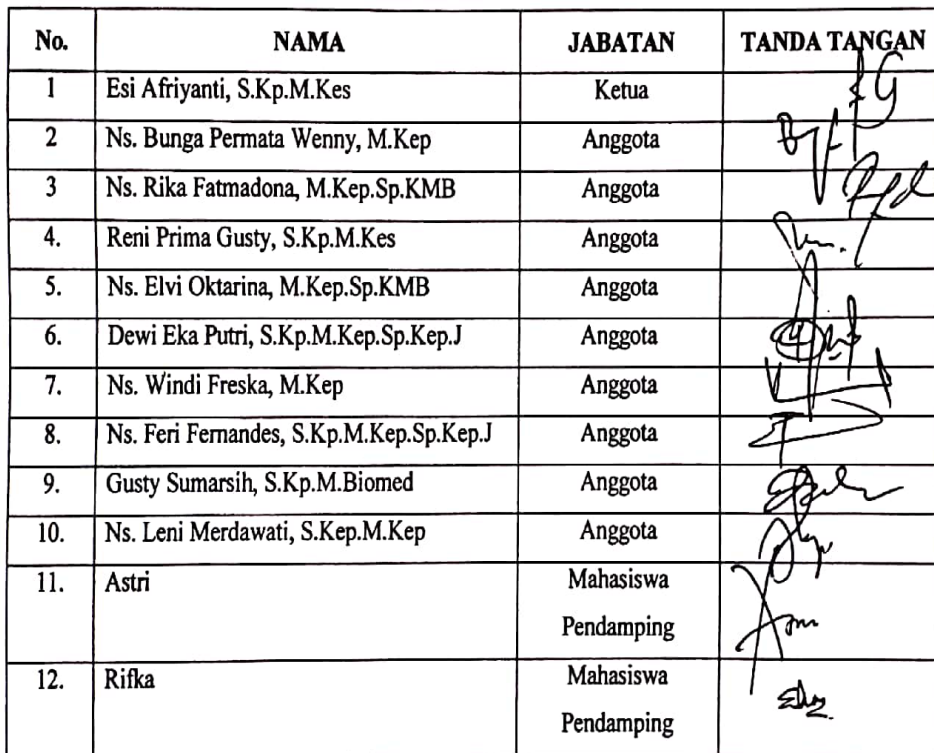 No. NAMA JABATAN TANDA TANGAN
1 Esi Afriyanti, S.Kp.M.Kes Ketua
2 Ns. Bunga Permata Wenny, M.Kep Anggota
3 Ns. Rika Fatmadona, M.Kep.Sp.KMB Anggota
4. Reni Prima Gusty, S.Kp.M.Kes Anggota
5. Ns. Elvi Oktarina, M.Kep.Sp.KMB Anggota
6. Dewi Eka Putri, S.Kp.M.Kep.Sp.Kep.J Anggota
7. Ns. Windi Freska, M.Kep Anggota
8. Ns. Feri Fernandes, S.Kp.M.Kep.Sp.Kep.J Anggota
9. Gusty Sumarsih, S.Kp.M.Biomed Anggota
10. Ns. Leni Merdawati, S.Kep.M.Kep Anggota
11. Astri Mahasiswa
Pendamping
12. Rifka Mahasiswa
Pendamping